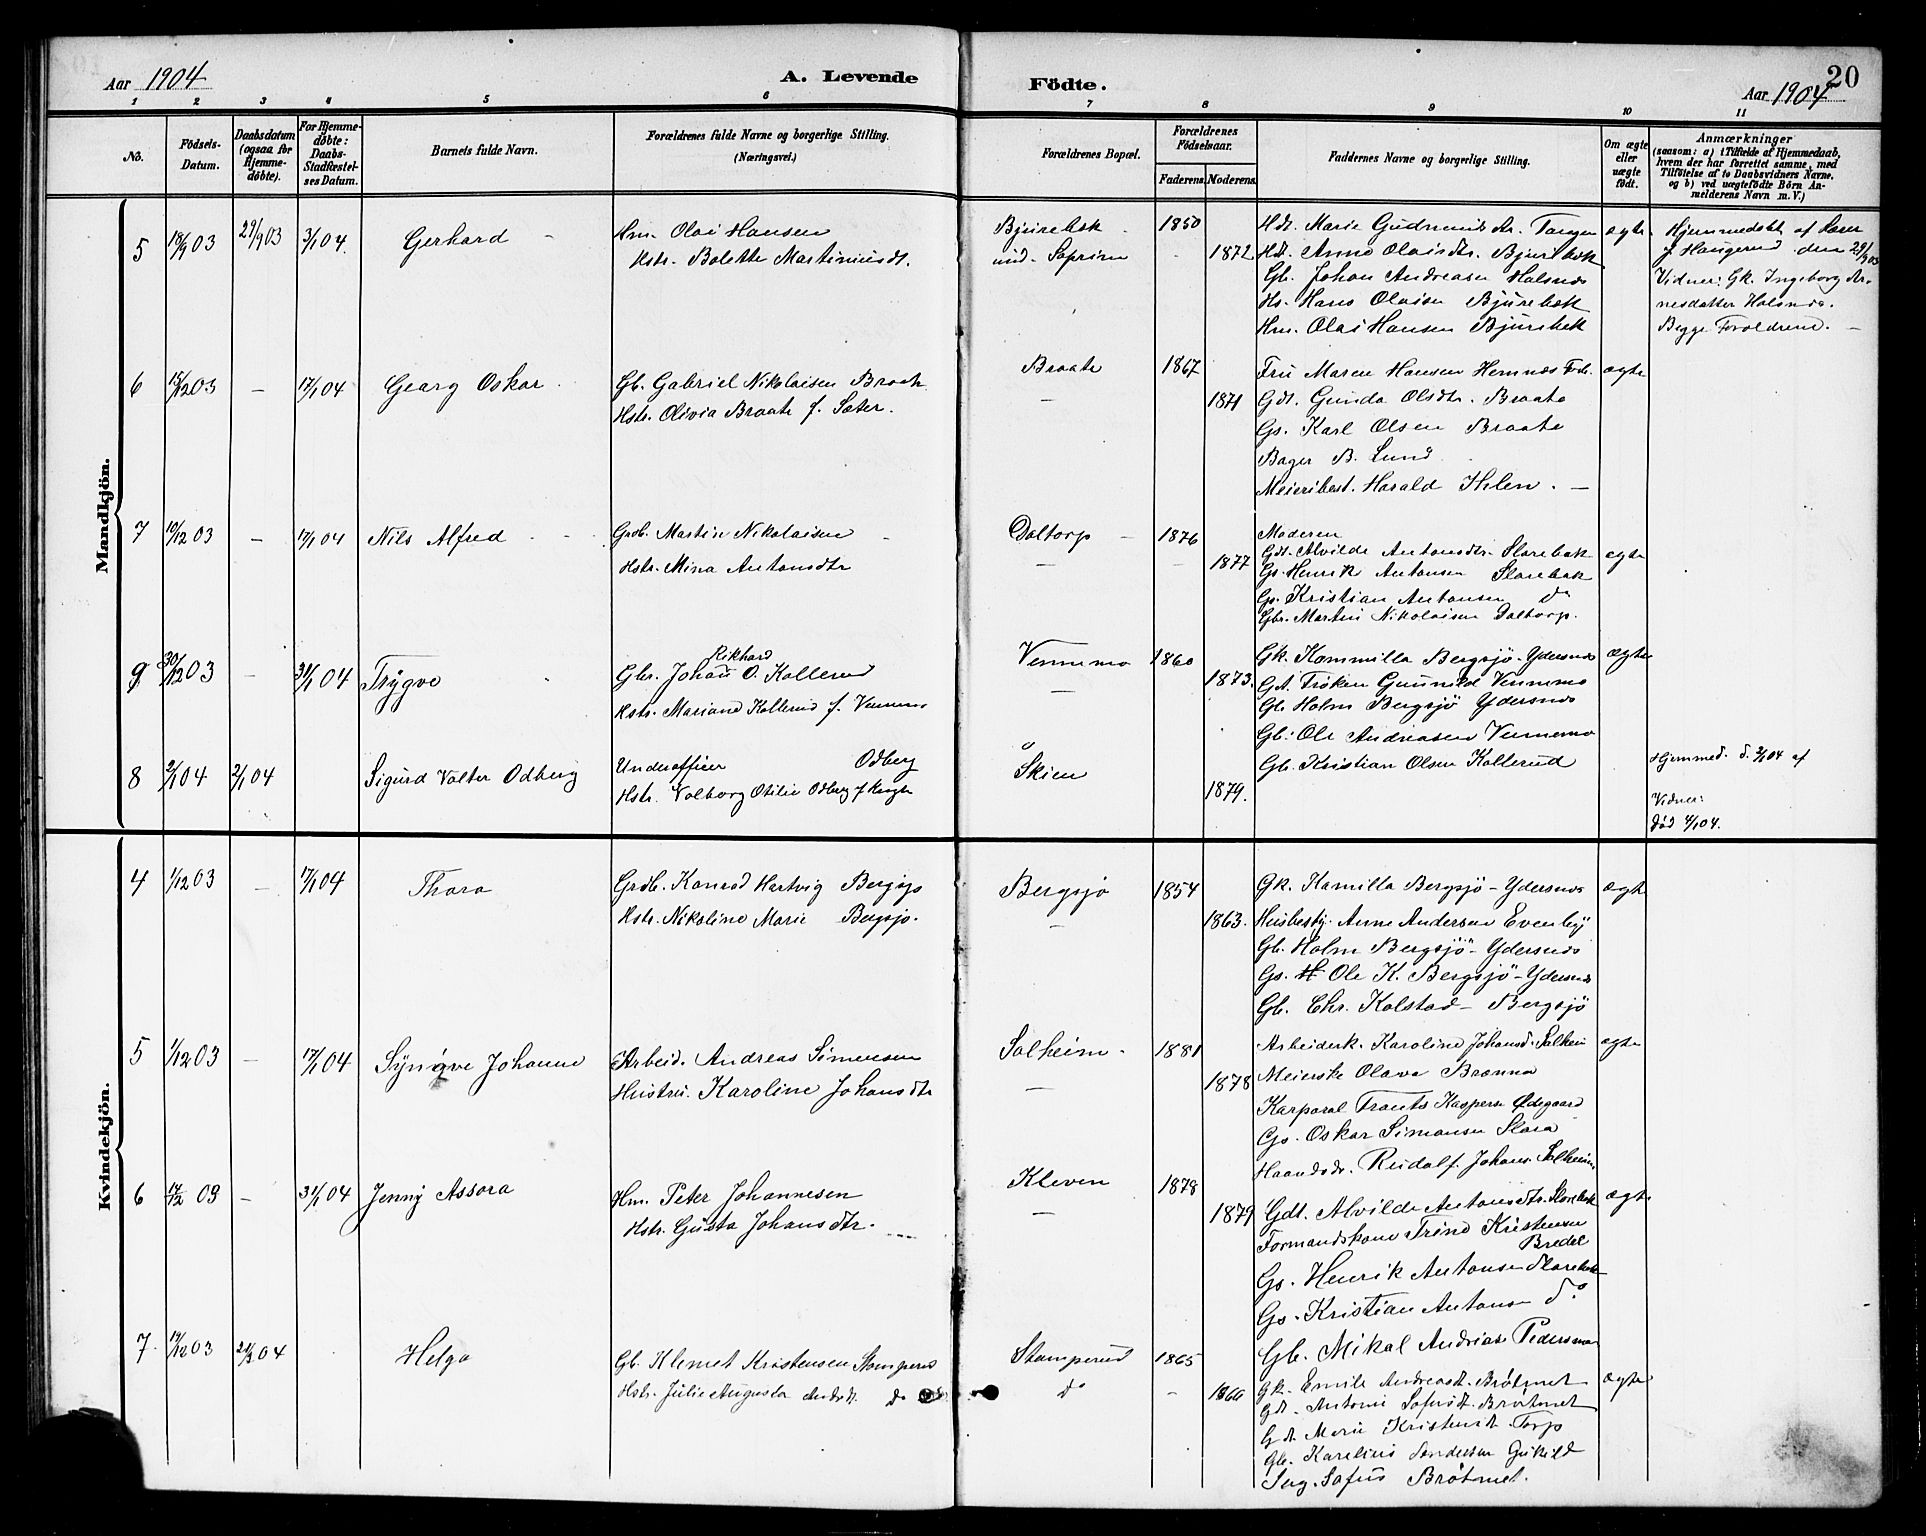 Aar 1904
A. Levende
Födte.
20
Aar 1904
1 2 3 4 5 6 7 8 9 10 11
No.
Födsels-Datum.
Daabsdatum (ogsaa for Hjemme-döbte).
For Hjemme-döbte: Daabs-Stadfæstel-ses Datum.
Barnets fulde Navn.
Forældrenes fulde Navne og borgerlige Stilling.
(Næringsvei.)
Forældrenes Bopæl.
Forældrenes Födselsaar.
Faderens. Moderens.
Faddernes Navne og borgerlige Stilling.
Om ægte eller uægte födt.
Anmærkninger
(saasom: a) i Tilfælde af Hjemmedaab,
hvem der har forrettet samme, med
Tilföielse af to Daabsvidners Navne,
og b) ved uægtefödte Börn An-
melderens Navn m. V.)
Mandkjön.
5 18/9 03 29/9 03 3/1 04 Gerhard
Hm. Olai Hansen
Hstr. Bolette Martiniusdt.
Bjurebæk
1850
1872
Hdt. Marie Gudmundsdr. Tangen
Hdt. Anne Olaisdtr. Bjurebæk
Gb. Johan Andreasen Halsnæs
Hs. Hans Olaisen Bjurebæk
Hm. Olai Hansen Bjurebæk
ægte
Hjemmedøbt af Lærer
J. Haugerud den 29/9 03
Vidner: Gk. Ingeborg Ar-
nesdatter Halsnæs.
Begge Forældrene.
6 15/12 03 — 17/1 04 Georg Oskar
Gb. Gabriel Nikolaisen Braate
Hstr. Olivia Braate f. Sæter.
Braate
—
1867
1871
Fru Maren Hansen Hemnæs Fab.
Gdt. Gunda Olsdtr. Braate
Gs. Karl Olsen Braate
Bager B. Lund
Meieribest. Harald Ihlen. —
ægte
7 10/12 03 — 17/1 04 Nils Alfred
Grdb. Martin Nikolaisen
Hstr. Mina Antonsdtr
Daltorp
—
1876
1877
Moderen
Gdt. Alvilde Antonsdtr. Slorebæk
Gs. Henrik Antonsen Slorebæk
Gs. Kristian Antonsen do
Gbr. Martin Nikolaisen Daltorp.
ægte
9 30/12 03 — 31/1 04 Trygve
Rikhard
Gbr. Johan O. Kollerud
Hstr. Mariane Kollerud f. Vennemo
Vennemo
—
1860
1873.
Gk. Kammilla Bergsjö-Ydersnes
Gdt. Frøken Gunnild Vennemo
Gb. Holm Bergsjö Ydersnes
Gb. Ole Andreasen Vennemo
Gb. Kristian Olsen Kollerud
ægte
8 2/1 04 2/1 04 Sigurd Valter Odberg
Underofficer Odberg
Hstr. Valborg Otilie Odberg f.
Skien
1879.
Hjemmed. d. 2/1 04 af
Vidner:
død 4/1 04.
Kvindekjön.
4 1/12 03 — 17/1 04 Thora
Grdb. Konrad Hartvig Bergsjø
Hstr. Nikoline Marie Bergsjø.
Bergsjö
—
1854
1863.
Gk. Kamilla Bergsjö-Ydersnes
Husbesty. Anne Andersen Evenby
Gb. Holm Bergsjö-Ydersnes
Gs. Ole K. Bergsjö-Ydersnes
Gb. Chr. Kolstad-Bergsjö
ægte
5 1/12 03 — 17/1 04 Synøve Johanne
Arbeid. Andreas Simensen
Hustru. Karoline Johansdtr
Solheim.
—
1881
1878
Arbeiderk. Karoline Johansd. Solheim
Meierske Olava Brænna
Karporal Frants Kaspersen Ødegaard
Gs. Oskar Simensen Slora
Haandv. Rudolf Johans. Solheim
ægte
6 14/12 03 — 31/1 04 Jenny Assora
Hm. Peter Johannesen
Hstr. Gusta Johansdtr.
Kleven
—
1878
1879
Gdt. Alvilde Antonsdtr. Slorebæk
Formandskone Trine Kristensen
Bredel
Gs. Henrik Antonsen Slorebæk
Gs. Kristian Antonsen do
Gb. Mikal Andreas Pedersen
ægte
7 19/12 03 04 Helga
Gb. Klemet Kristensen Stomperud
Hstr. Julie Augusta Andrsdt. do
Stomperud
do
1865
1866
Gk. Emile Andreasdt. Brøtmet
Gdt. Antonie Sofusdt. Brøtmet
Gdt. Marie Kristensdt. Torp
Gb. Karelius Andersen
Serg. Sofus Brøtmet.
ægte